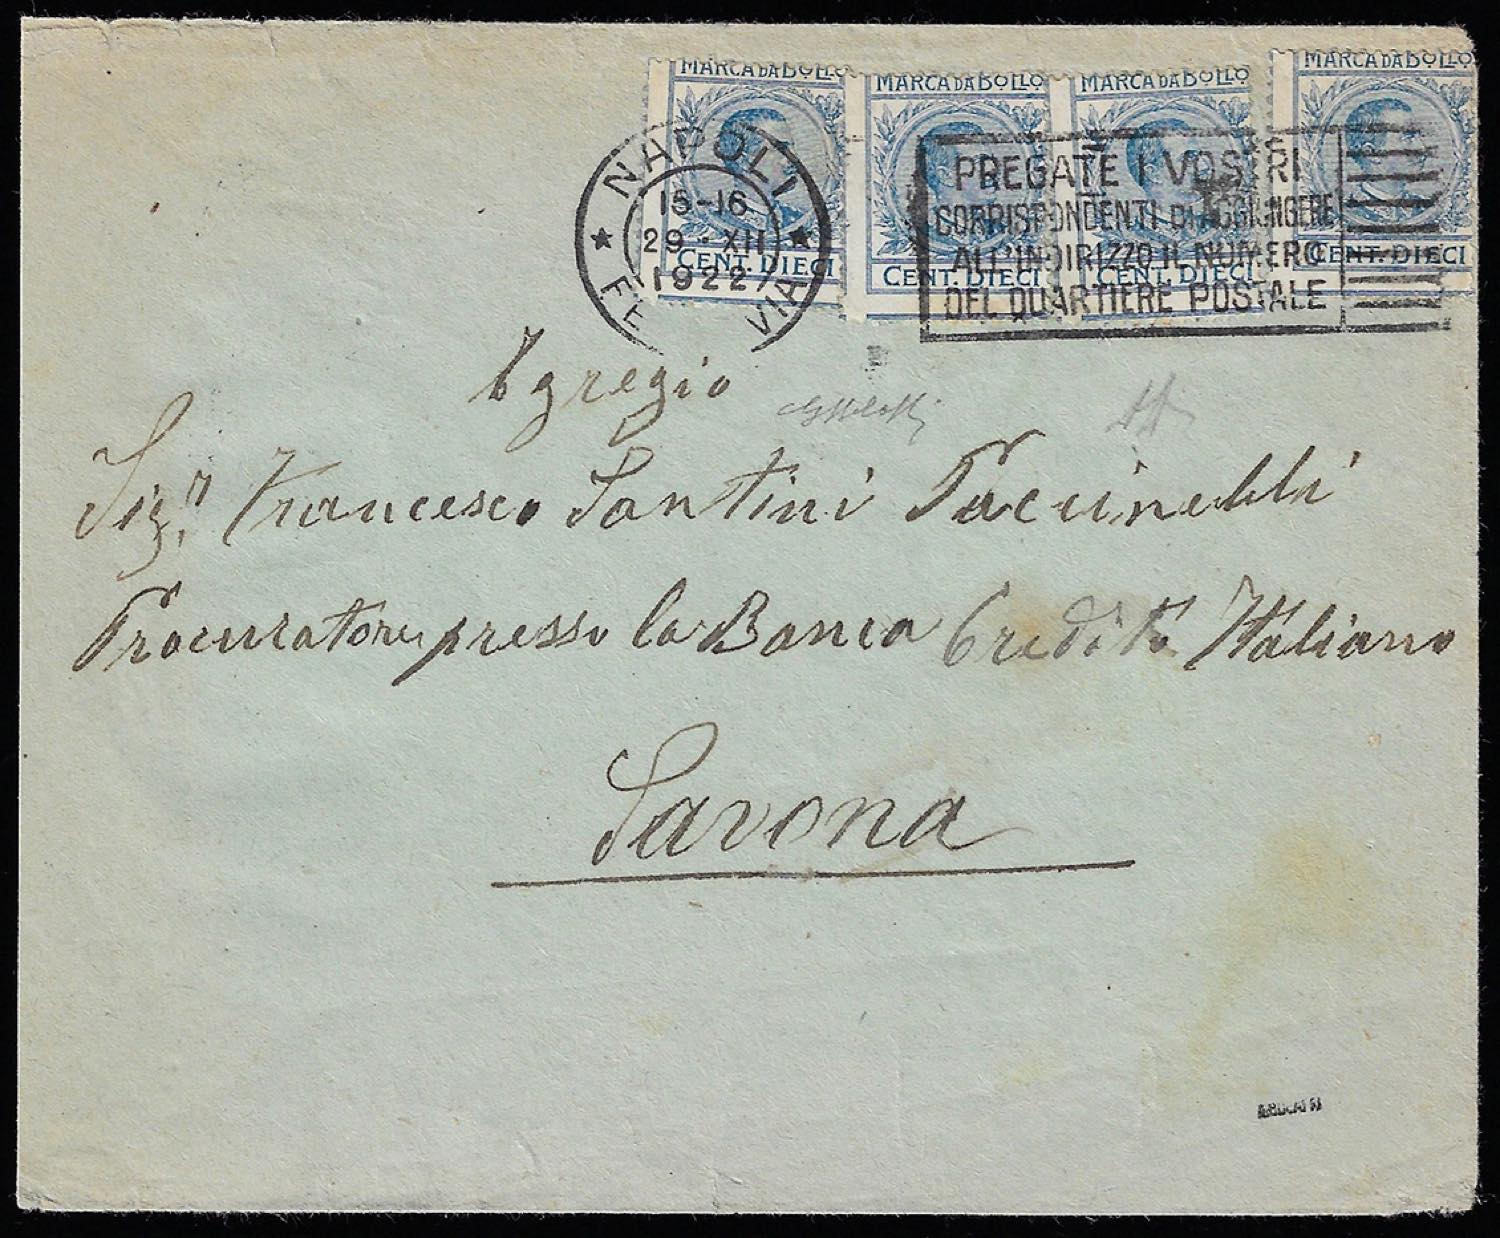 MARCA DA BOLLO MARCA DA BOLLO MARCA DA BOLLO MARCA DA BOLLO
CENT. DIECI CENT. DIECI CENT. DIECI CENT. DIECI
NAPOLI
15-16
29 · XII
1922
FE VIA
PREGATE I VOSTRI
CORRISPONDENTI DI AGGIUNGERE
ALL'INDIRIZZO IL NUMERO
DEL QUARTIERE POSTALE
Egregio
Sig.r Francesco Santini Paccinelli
Procuratore presso la Banca Credito Italiano
Savona